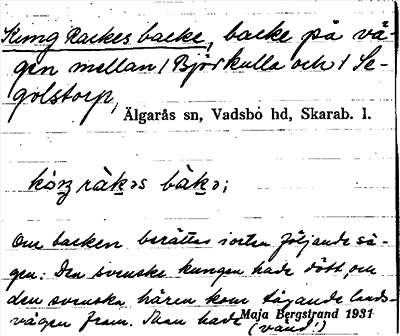 Kung Rackes backe, backe på vä-
gen mellan 1 Björkulla och 1 Se-
golstorp,
Älgarås sn, Vadsbo hd, Skarab. l.
kóŋ ràk̲əs bàk̲ə;
Om backen berättas i orten följande sä-
gen: Den svenske kungen hade dött, om
den svenska hären kom tågande lands-
vägen fram. Man hade
(vänd!)
Maja Bergstrand 1931